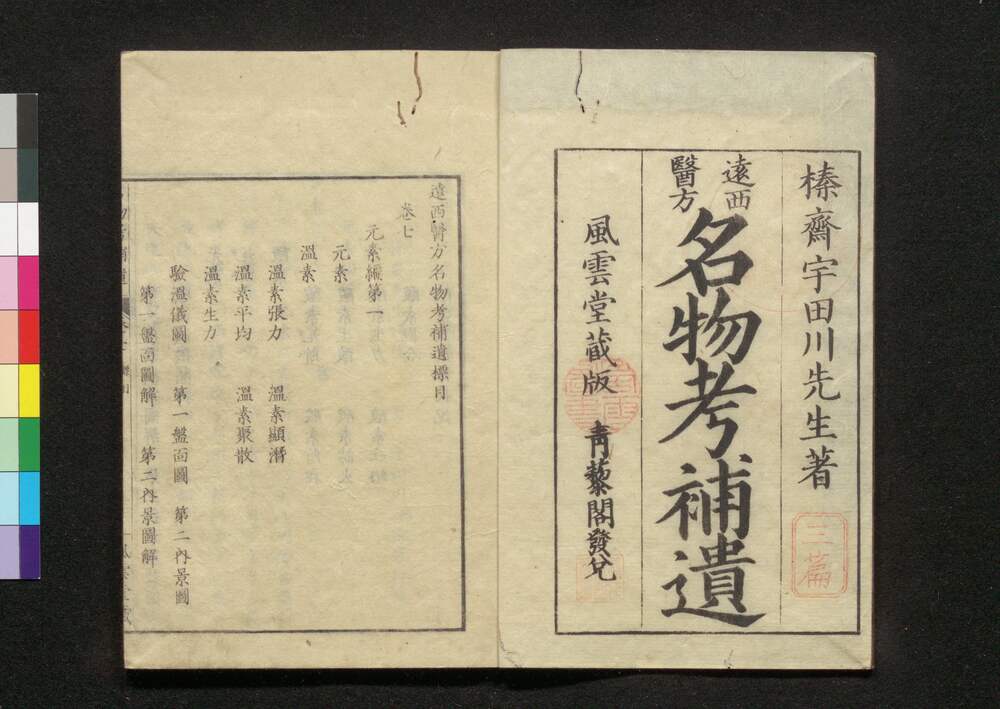 榛齋宇田川先生著
三篇
遠西
醫方
名物考補遺
風雲堂蔵版
青藜閣發兌
遠西醫方名物考補遺標目
卷七
元素編第一
元素
溫素
溫素張力 溫素顯潛
溫素平均 溫素聚散
溫素生力
驗溫儀圖 第一盤面圖 第二內景圖
第一盤面圖解 第二內景圖解